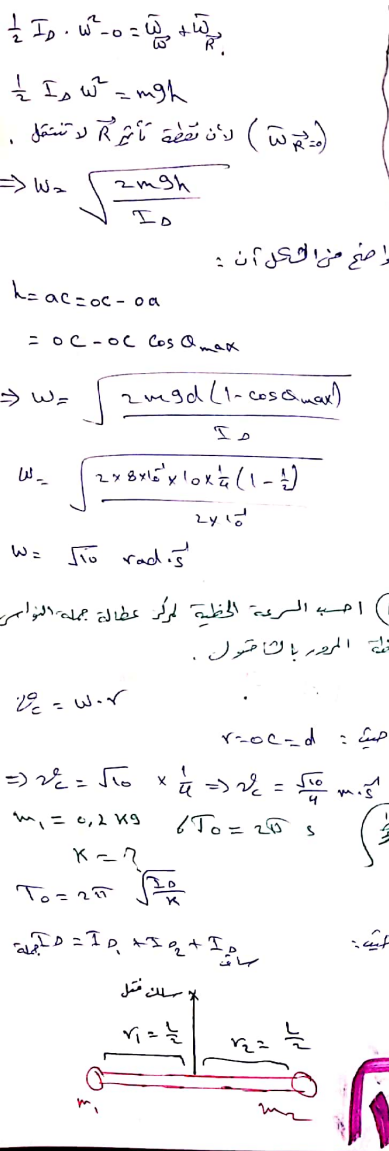 ½ I_D · ω² - 0 = W̄_W⃗ + W̄_R⃗
½ I_D ω² = mgh
( W̄_R⃗=0 ) لأن نقطة تأثير R⃗ لا تنتقل .
⇒ ω = √(2mgh / I_D)
واضح من الشكل أن :
h = ac = oc - oa
= oc - oc cos θmax
⇒ ω = √(2mgd (1 - cos θmax) / I_D)
ω = √(2 × 8×10⁻¹ × 10 × ¼ (1 - ½) / 2×10⁻¹)
ω = √10 rad.s⁻¹
احسب السرعة الخطية لمركز عطالة جملة النواس
المرور بالشاقول .
v_c = ω · r
حيث : r = oc = d
⇒ v_c = √10 × ¼ ⇒ v_c = √10/4 m.s⁻¹
m₁ = 0,2 kg , T₀ = 2π s
K = ?
T₀ = 2π √(I_D / K)
حيث : I_D جملة = I_D₁ + I_D₂ + I_D ساق
سلك فتل
r₁ = L/2 r₂ = L/2
m₁ m₂